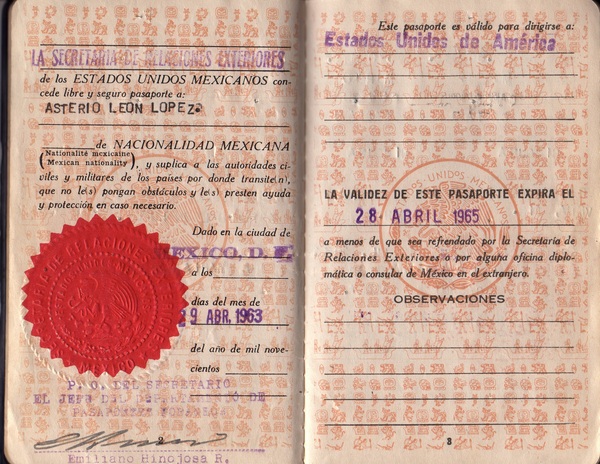 LA SECRETARIA DE RELACIONES EXTERIORES
de los ESTADOS UNIDOS MEXICANOS con-
cede libre y seguro pasaporte a:
ASTERIO LEON LOPEZ
de NACIONALIDAD MEXICANA
(Nationalité mexicaine
Mexican nationality), y suplica a las autoridades ci-
viles y militares de los países por donde transite(n),
que no le(s) pongan obstáculos y le(s) presten ayuda
y protección en caso necesario.
Dado en la ciudad de
MEXICO, D. F.
a los
días del mes de
29 ABR. 1963
del año de mil nove-
cientos
P. O. DEL SECRETARIO
EL JEFE DEL DEPARTAMENTO DE
PASAPORTES
2
Emiliano Hinojosa R.
Este pasaporte es válido para dirigirse a:
Estados Unidos de América
LA VALIDEZ DE ESTE PASAPORTE EXPIRA EL
28 ABRIL 1965
a menos de que sea refrendado por la Secretaría de
Relaciones Exteriores o por alguna oficina diplo-
mática o consular de México en el extranjero.
OBSERVACIONES
3